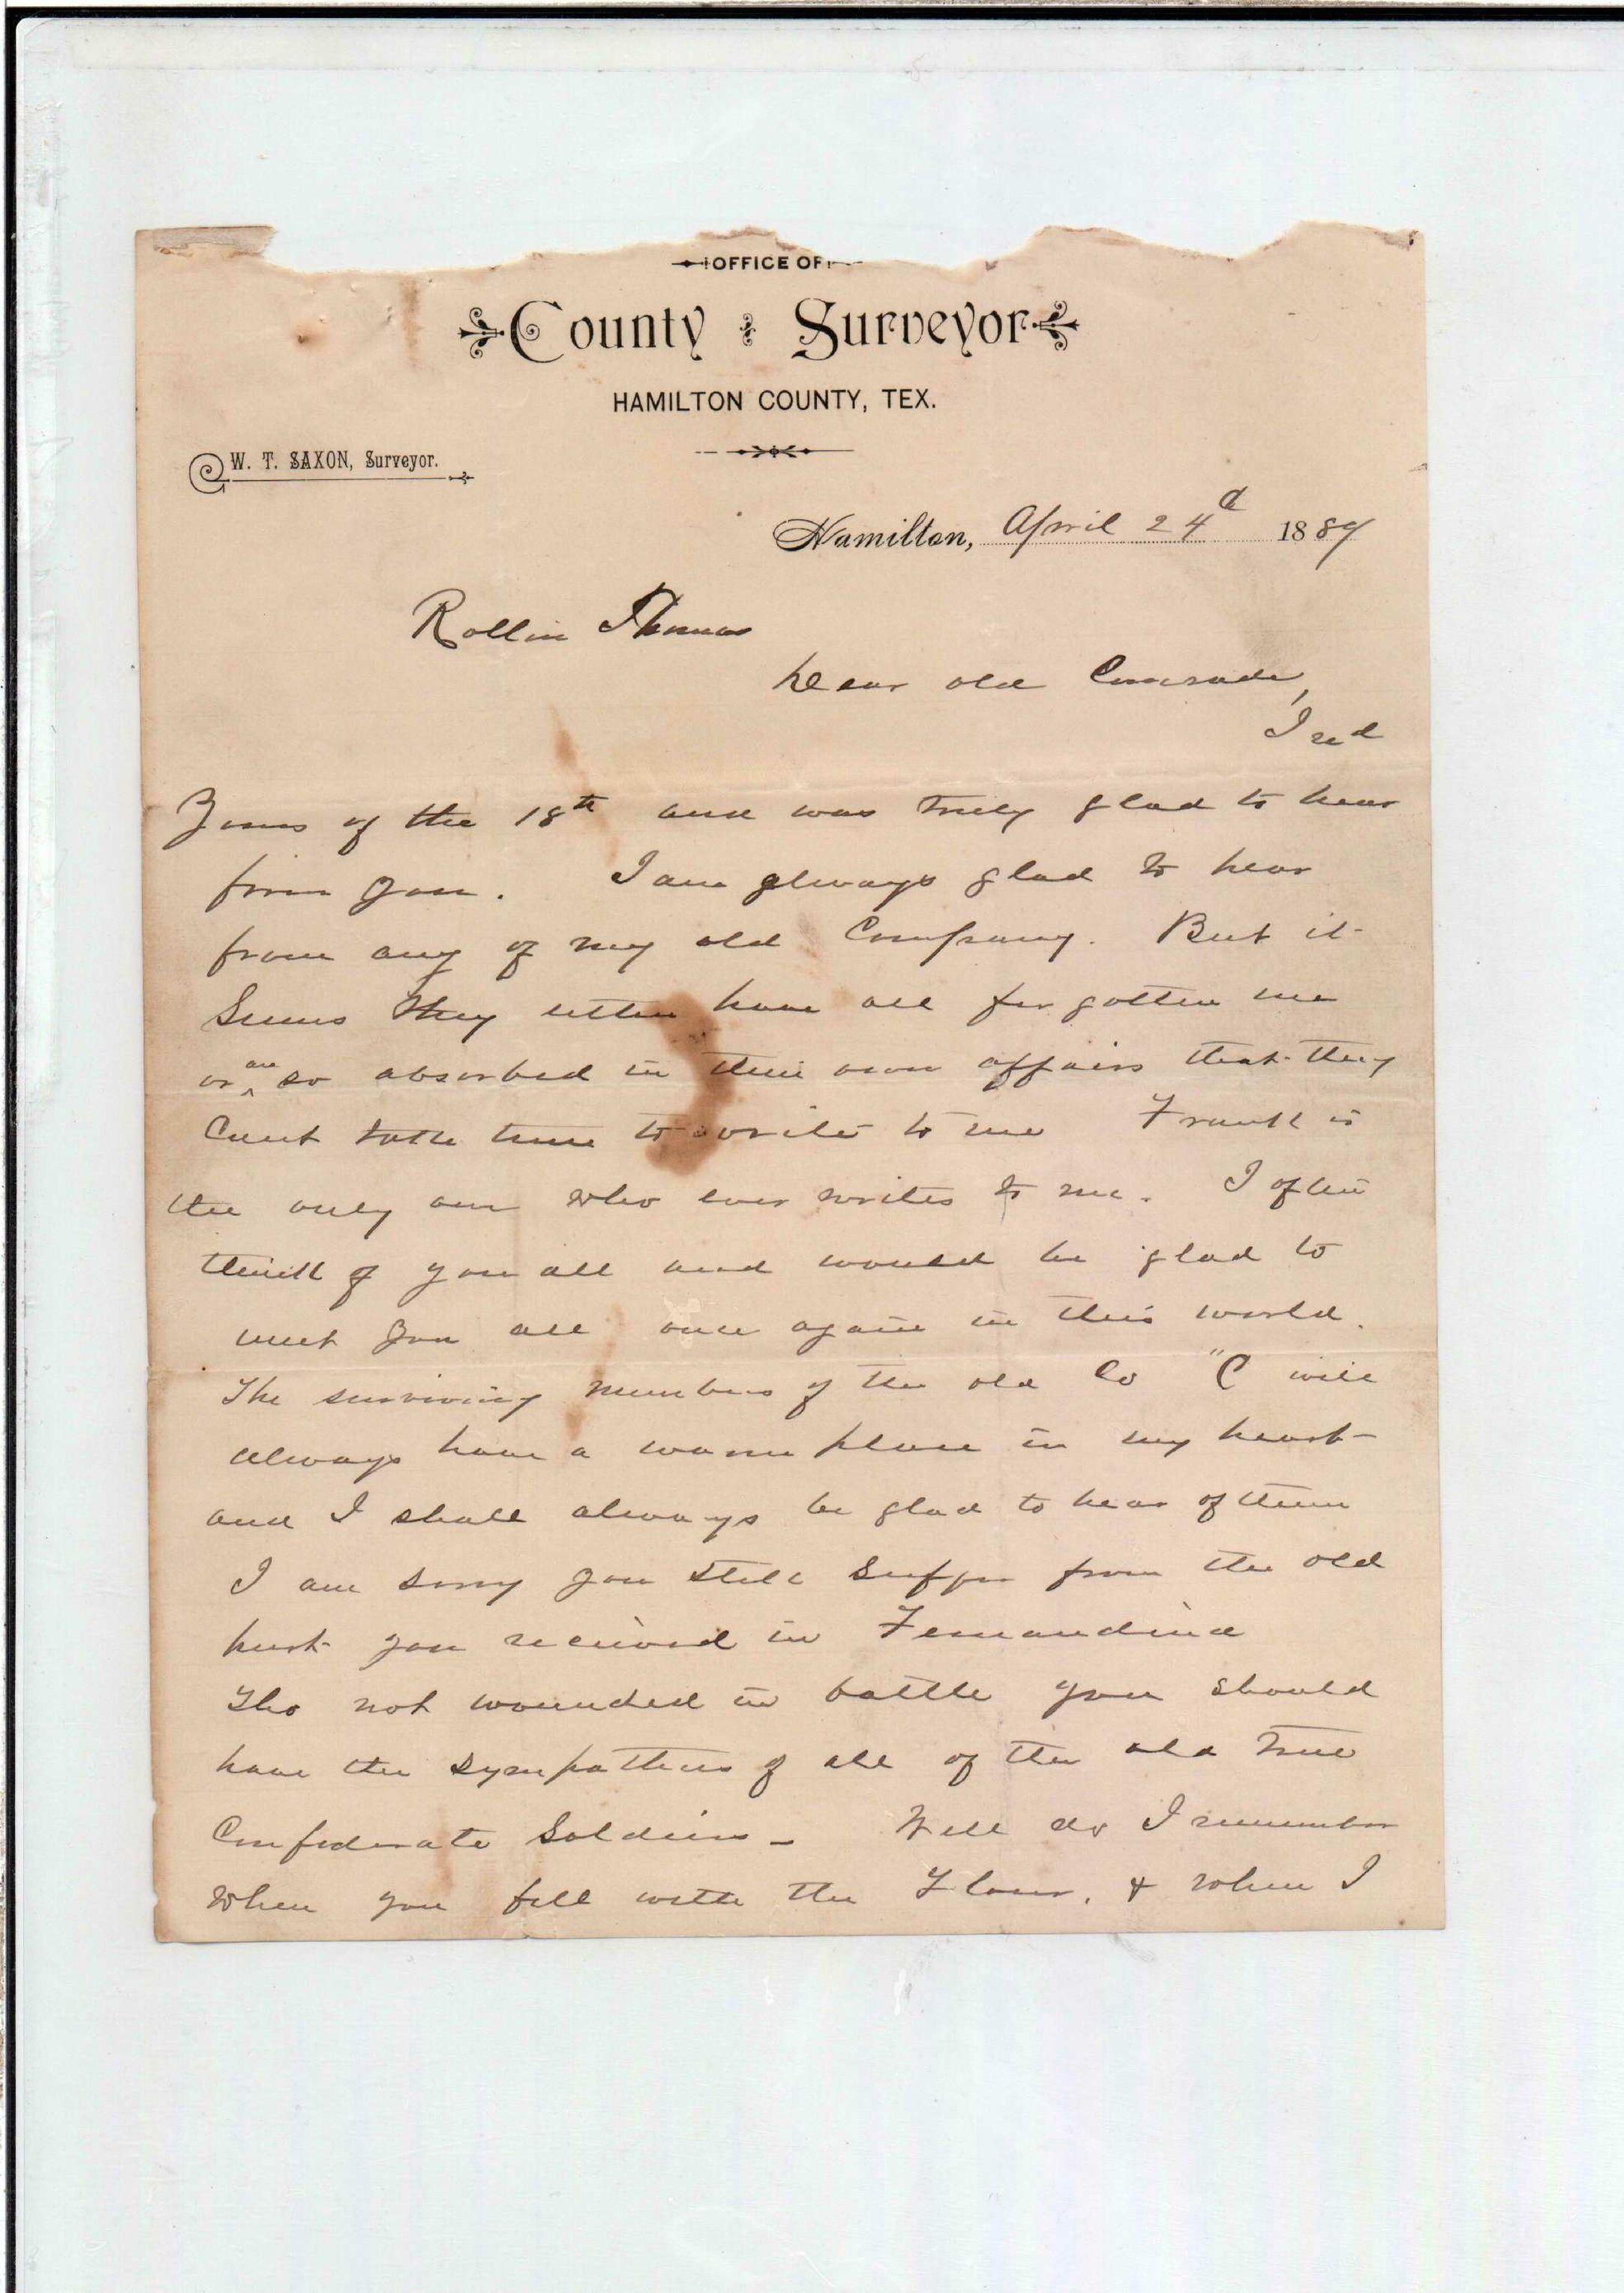 OFFICE OF
County Surveyor
HAMILTON COUNTY, TEX.
W. T. SAXON, Surveyor.
Hamilton, April 24d 1889
Rollin Thomas
Dear old Comrade,
I recd
Yours of the 18th and was truly glad to hear
from you. I am always glad to hear
from any of my old Company. But it
Seems they either have all forgotten me
or are so absorbed in their own affairs that they
Cant take time to write to me Frank is
the only one who ever writes to me. I often
think of you all and would be glad to
meet you all once again in this world.
The surviving members of the old Co "C will
always have a warm place in my heart
and I shall always be glad to hear of them
I am sorry you still suffer from the old
hurt you received in Fernandina
Tho not wounded in battle you should
have the sympathies of all of the old True
Confederate Soldiers - Well do I remember
When you fell with the Flour, & when I